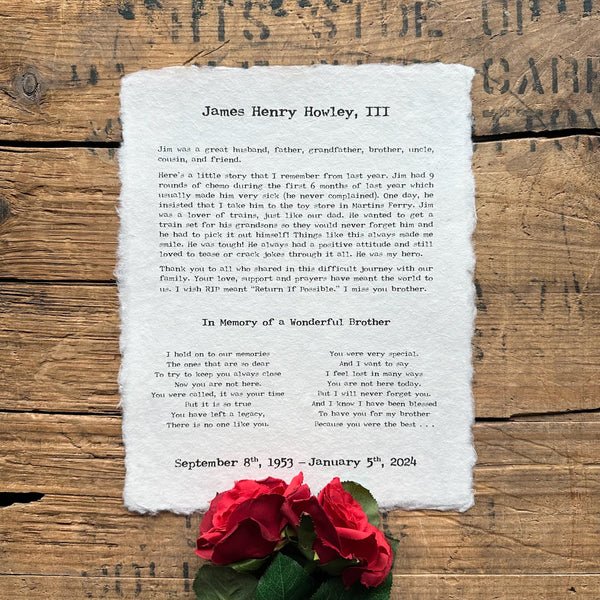 SIDE OF
CARE
James Henry Howley, III
Jim was a great husband, father, grandfather, brother, uncle,
cousin, and friend.
Here's a little story that I remember from last year. Jim had 9
rounds of chemo during the first 6 months of last year which
usually made him very sick (he never complained). One day, he
insisted that I take him to the toy store in Martins Ferry. Jim
was a lover of trains, just like our dad. He wanted to get a
train set for his grandsons so they would never forget him and
he had to pick it out himself! Things like this always made me
smile. He was tough! He always had a positive attitude and still
loved to tease or crack jokes through it all. He was my hero.
Thank you to all who shared in this difficult journey with our
family. Your love, support and prayers have meant the world to
us. I wish RIP meant "Return If Possible." I miss you brother.
In Memory of a Wonderful Brother
I hold on to our memories
The ones that are so dear
To try to keep you always close
Now you are not here.
You were called, it was your time
But it is so true
You have left a legacy,
There is no one like you.
You were very special.
And I want to say
I feel lost in many ways
You are not here today.
But I will never forget you.
And I know I have been blessed
To have you for my brother
Because you were the best . . .
September 8th, 1953 – January 5th, 2024